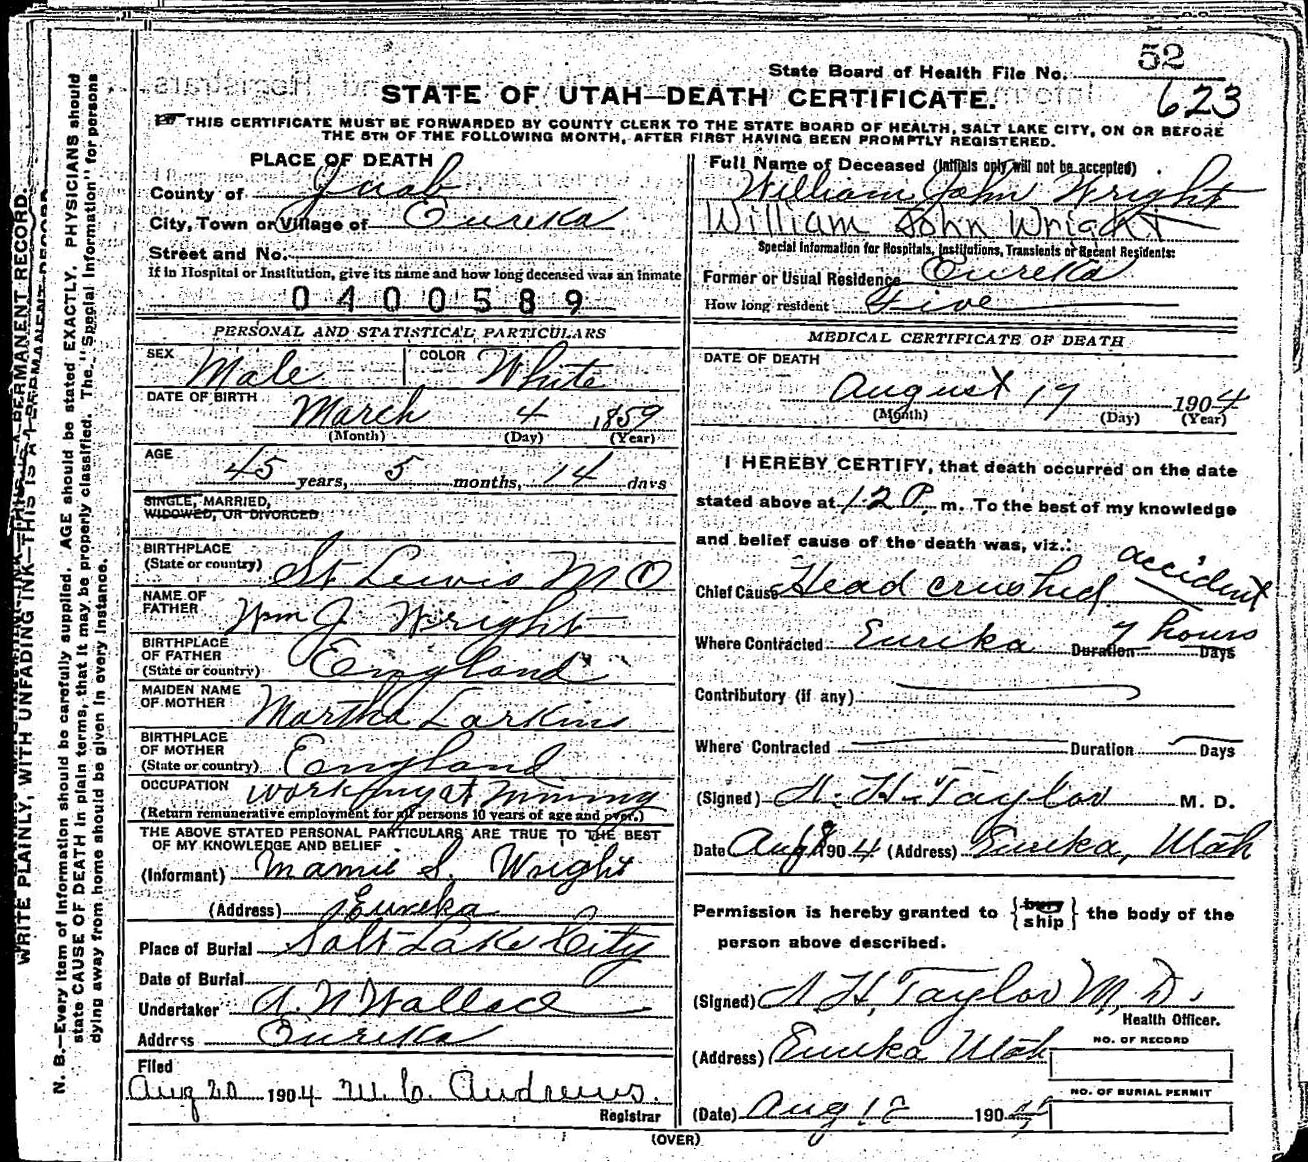 52
State Board of Health File No.
623
STATE OF UTAH—DEATH CERTIFICATE.
THIS CERTIFICATE MUST BE FORWARDED BY COUNTY CLERK TO THE STATE BOARD OF HEALTH, SALT LAKE CITY, ON OR BEFORE
THE 5TH OF THE FOLLOWING MONTH, AFTER FIRST HAVING BEEN PROMPTLY REGISTERED.
PLACE OF DEATH
County of Juab
City, Town or Village of Eureka
Street and No.
If in Hospital or Institution, give its name and how long deceased was an inmate
0400589
PERSONAL AND STATISTICAL PARTICULARS
SEX Male COLOR White
DATE OF BIRTH
March 4 1859
(Month) (Day) (Year)
AGE
45 years, 5 months, 14 days
SINGLE, MARRIED,
WIDOWED, OR DIVORCED
BIRTHPLACE
(State or country) St Lewis MO
NAME OF
FATHER Wm J. Wright
BIRTHPLACE
OF FATHER
(State or country) England
MAIDEN NAME
OF MOTHER Martha Larkins
BIRTHPLACE
OF MOTHER
(State or country) England
OCCUPATION working at mining
(Return remunerative employment for all persons 10 years of age and over.)
THE ABOVE STATED PERSONAL PARTICULARS ARE TRUE TO THE BEST
OF MY KNOWLEDGE AND BELIEF
(Informant) Mamie S. Wright
(Address) Eureka
Place of Burial Salt Lake City
Date of Burial
Undertaker A. N Wallace
Address Eureka
Filed
Aug 20 1904 M. C. Andrews.
Registrar
Full Name of Deceased (Initials only will not be accepted)
William John Wright
William John Wright
Special Information for Hospitals, Institutions, Transients or Recent Residents:
Former or Usual Residence Eureka
How long resident Five
MEDICAL CERTIFICATE OF DEATH
DATE OF DEATH
August 17 1904
(Month) (Day) (Year)
I HEREBY CERTIFY, that death occurred on the date
stated above at 12 P m. To the best of my knowledge
and belief cause of the death was, viz.:
Chief Cause Head crushed accident
Where Contracted Eureka Duration 7 hours Days
Contributory (if any)
Where Contracted Duration Days
(Signed) A. H. Taylor M. D.
Date Aug 1904 (Address) Eureka, Utah
Permission is hereby granted to {bury ship} the body of the
person above described.
(Signed) A H. Taylor M. D.
Health Officer.
(Address) Eureka Utah
NO. OF RECORD
NO. OF BURIAL PERMIT
(Date) Aug 18 190
(OVER)
WRITE PLAINLY, WITH UNFADING INK—THIS IS A PERMANENT RECORD.
N. B.—Every item of information should be carefully supplied. AGE should be stated EXACTLY. PHYSICIANS should
state CAUSE OF DEATH in plain terms, that it may be properly classified. The "Special Information" for persons
dying away from home should be given in every instance.